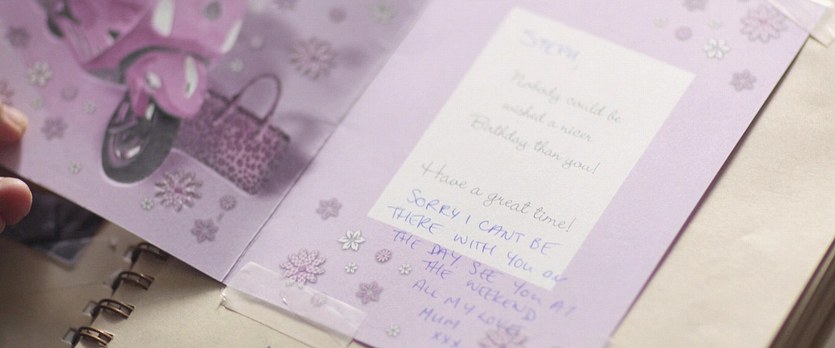 STEPH,
Nobody could be
wished a nicer
Birthday than you!
Have a great time!
SORRY I CANT BE
THERE WITH YOU ON
THE DAY SEE YOU AT
THE WEEKEND
ALL MY LOVE
MUM
xxx